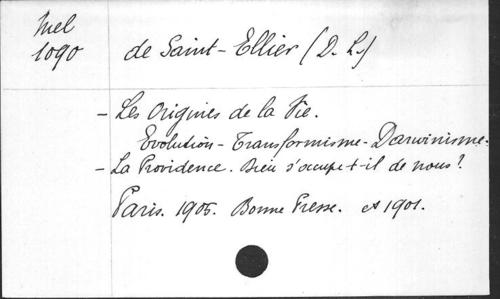 Mel
1090
de Saint-Ellier (D. L.)
- Les Origines de la Vie.
Evolution - Transformisme - Darwinisme.
- La Providence. Dieu s'occupe-t-il de nous?
Paris. 1905. Bonne Presse. et 1901.